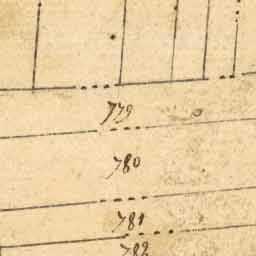 779
780
781
782